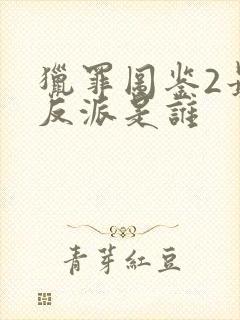 獵罪圖鉴2
反派是誰
青芽紅豆